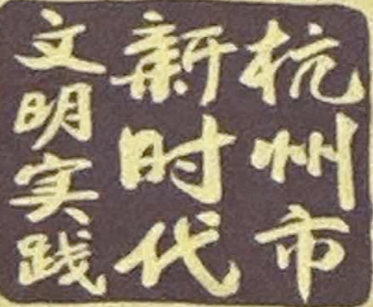 杭州市
新时代
文明实践